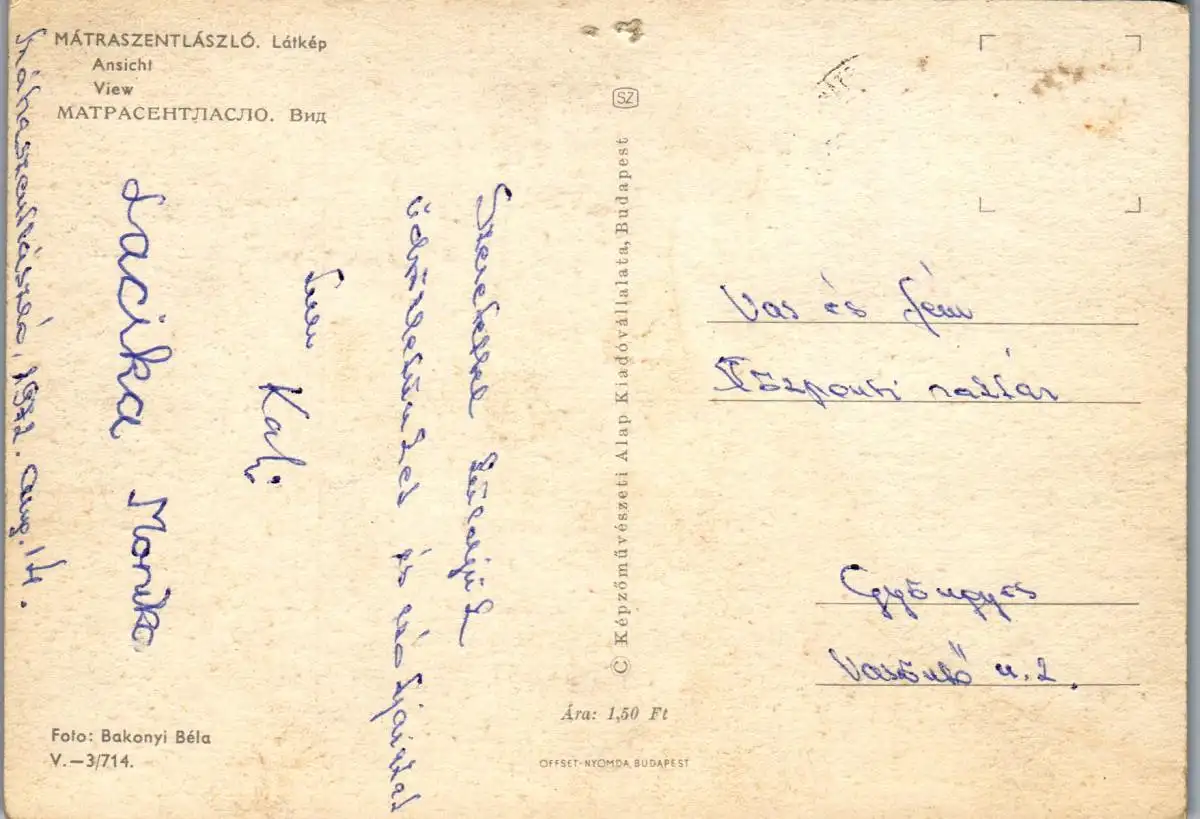 MÁTRASZENTLÁSZLÓ. Látkép
Ansicht
View
МАТРАСЕНТЛАСЛО. Вид
Mátraszentlászló, 1972. aug. 14.
Szeretettel küldjük
üdvözletünket és
Kati
Lacika Monika
SZ
© Képzőművészeti Alap Kiadóvállalata, Budapest
Vas és fém
Központi raktár
Gyöngyös
Vasöntő u. 2.
Ára: 1,50 Ft
Foto: Bakonyi Béla
V.—3/714.
OFFSET-NYOMDA, BUDAPEST